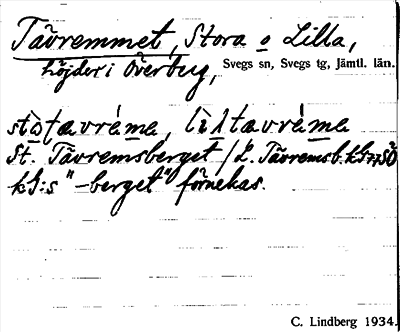 Tåvremmet, Stora o Lilla,
höjder i Överbyg, Svegs sn, Svegs tg, Jämtl. län.
stòtavréme, lìltavréme
St. Tåvremsberget / L. Tåvremsb. kG 77SÖ
kG:s "-berget" förnekas.
C. Lindberg 1934.